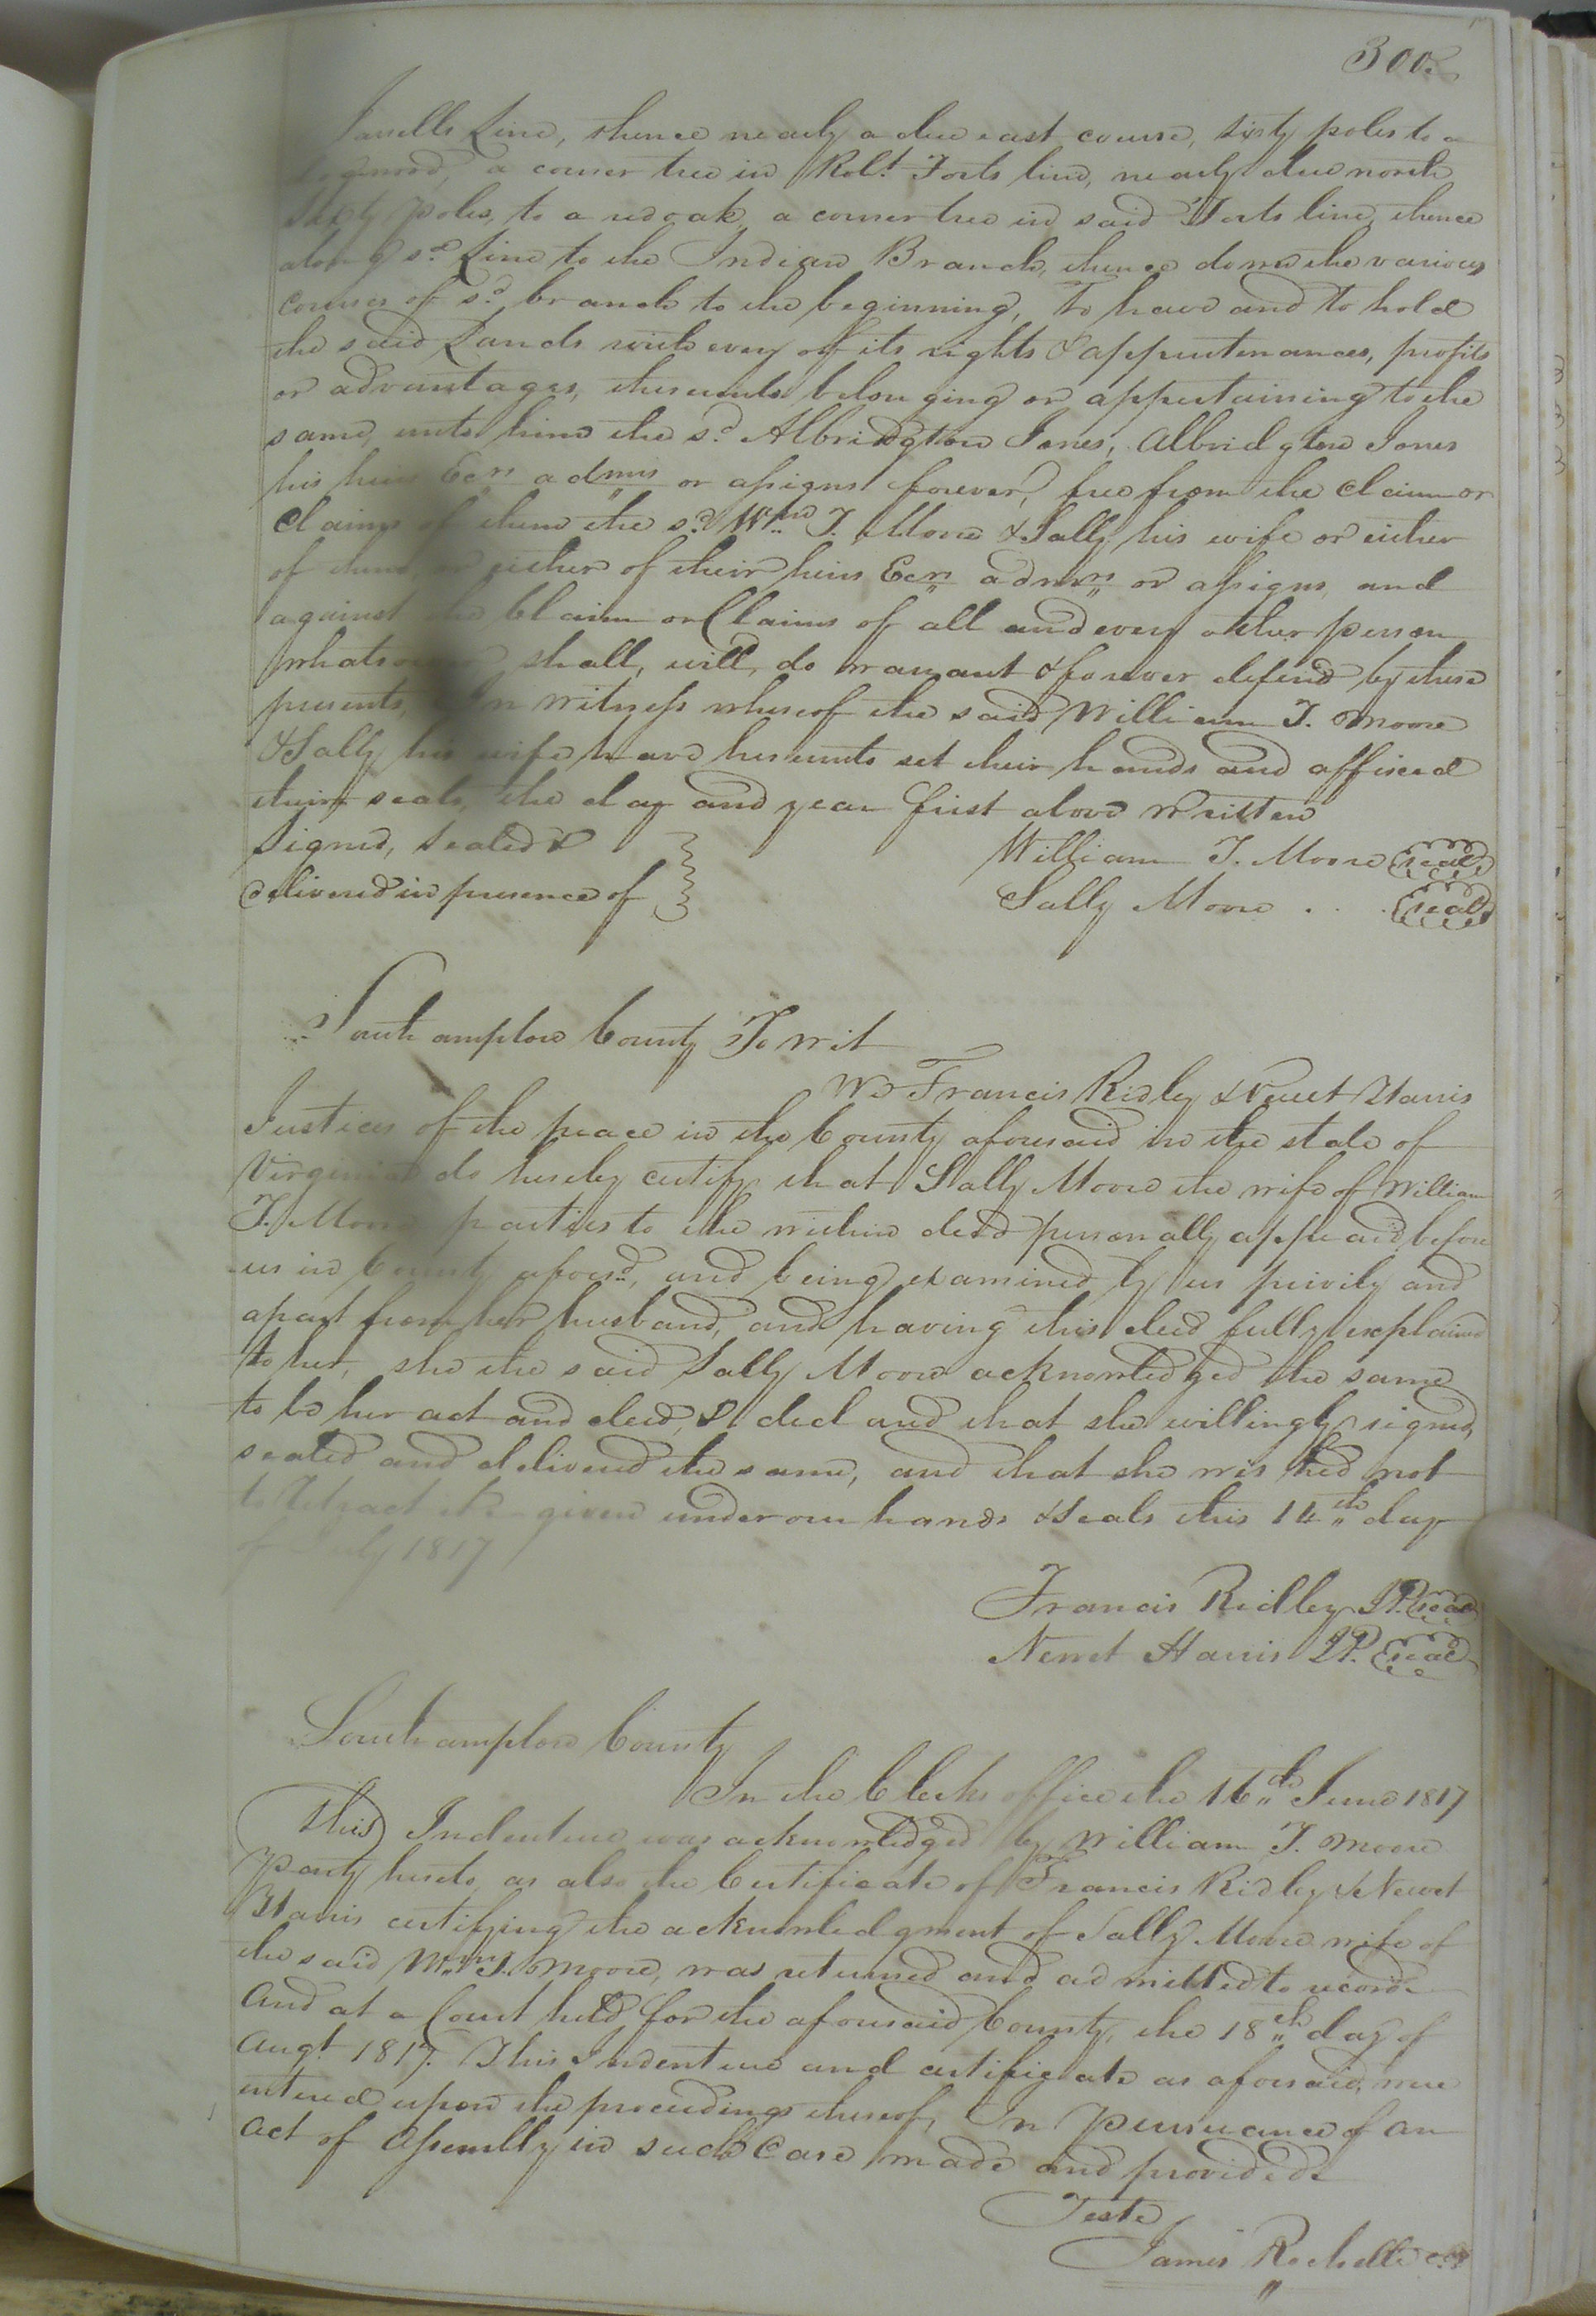 300.
Jarrells Line, thence nearly a due east course, sixty poles to a
a corner tree in Robt. Forts line, nearly due north
sixty poles, to a red oak a corner tree in said Forts line, thence
along sd. Line to the Indian Branch, thence down the various
courses of sd. branch to the beginning, To have and to hold
the said Lands with every of its rights & appurtenances, profits
or advantages, thereunto belonging or appertaining to the
same, unto him the sd. Albridgton Jones, Albridgton Jones
his heirs Ecrs admrs or assigns forever, free from the claim or
claims of them the sd. Wm. T. Moore & Sally his wife or either
of them, or either of their heirs Ecrs admrs or assigns, and
against the Claim or Claims of all and every other person
whatsoever shall, will, do warrant & forever defend by these
presents, In witness whereof the said William T. Moore
& Sally his wife have hereunto set their hands and affixed
their seals, the day and year first above written
Signed, Sealed & William T. Moore seal
delivered in presence of Sally Moore . . . seal
Southampton County To wit
We Francis Ridley & Newet Harris
Justices of the peace in the County aforesaid in the state of
Virginia do hereby certify that Sally Moore the wife of William
T. Moore parties to the within deed personally appeard before
us in County aforesd., and being examined by us privily and
apart from her husband, and having this deed fully explained
to her, she the said Sally Moore acknowledged the same
to be her act and deed, & ded and that she willingly signed,
sealed and delivered the same, and that she wished not
to Retract it given under our hands & Seals this 14th day
of July 1817
Francis Ridley JP. seal
Newet Harris JP. seal
Southampton County
In the Clerks office the 16th June 1817
This Indenture was acknowledged by William T. Moore
Party hereto, as also the Certificate of Francis Ridley & Newet
Harris certifying the acknowledgment of Sally Moore wife of
the said Wm. T. Moore, was returned and admitted to record
And at a Court held for the aforesaid County, the 18th day of
Augt. 1817. This Indenture and certificate as aforesaid, were
entered upon the proceedings thereof, In pursuance of an
act of Assembly in such Case made and provided
Teste
James Rochelle